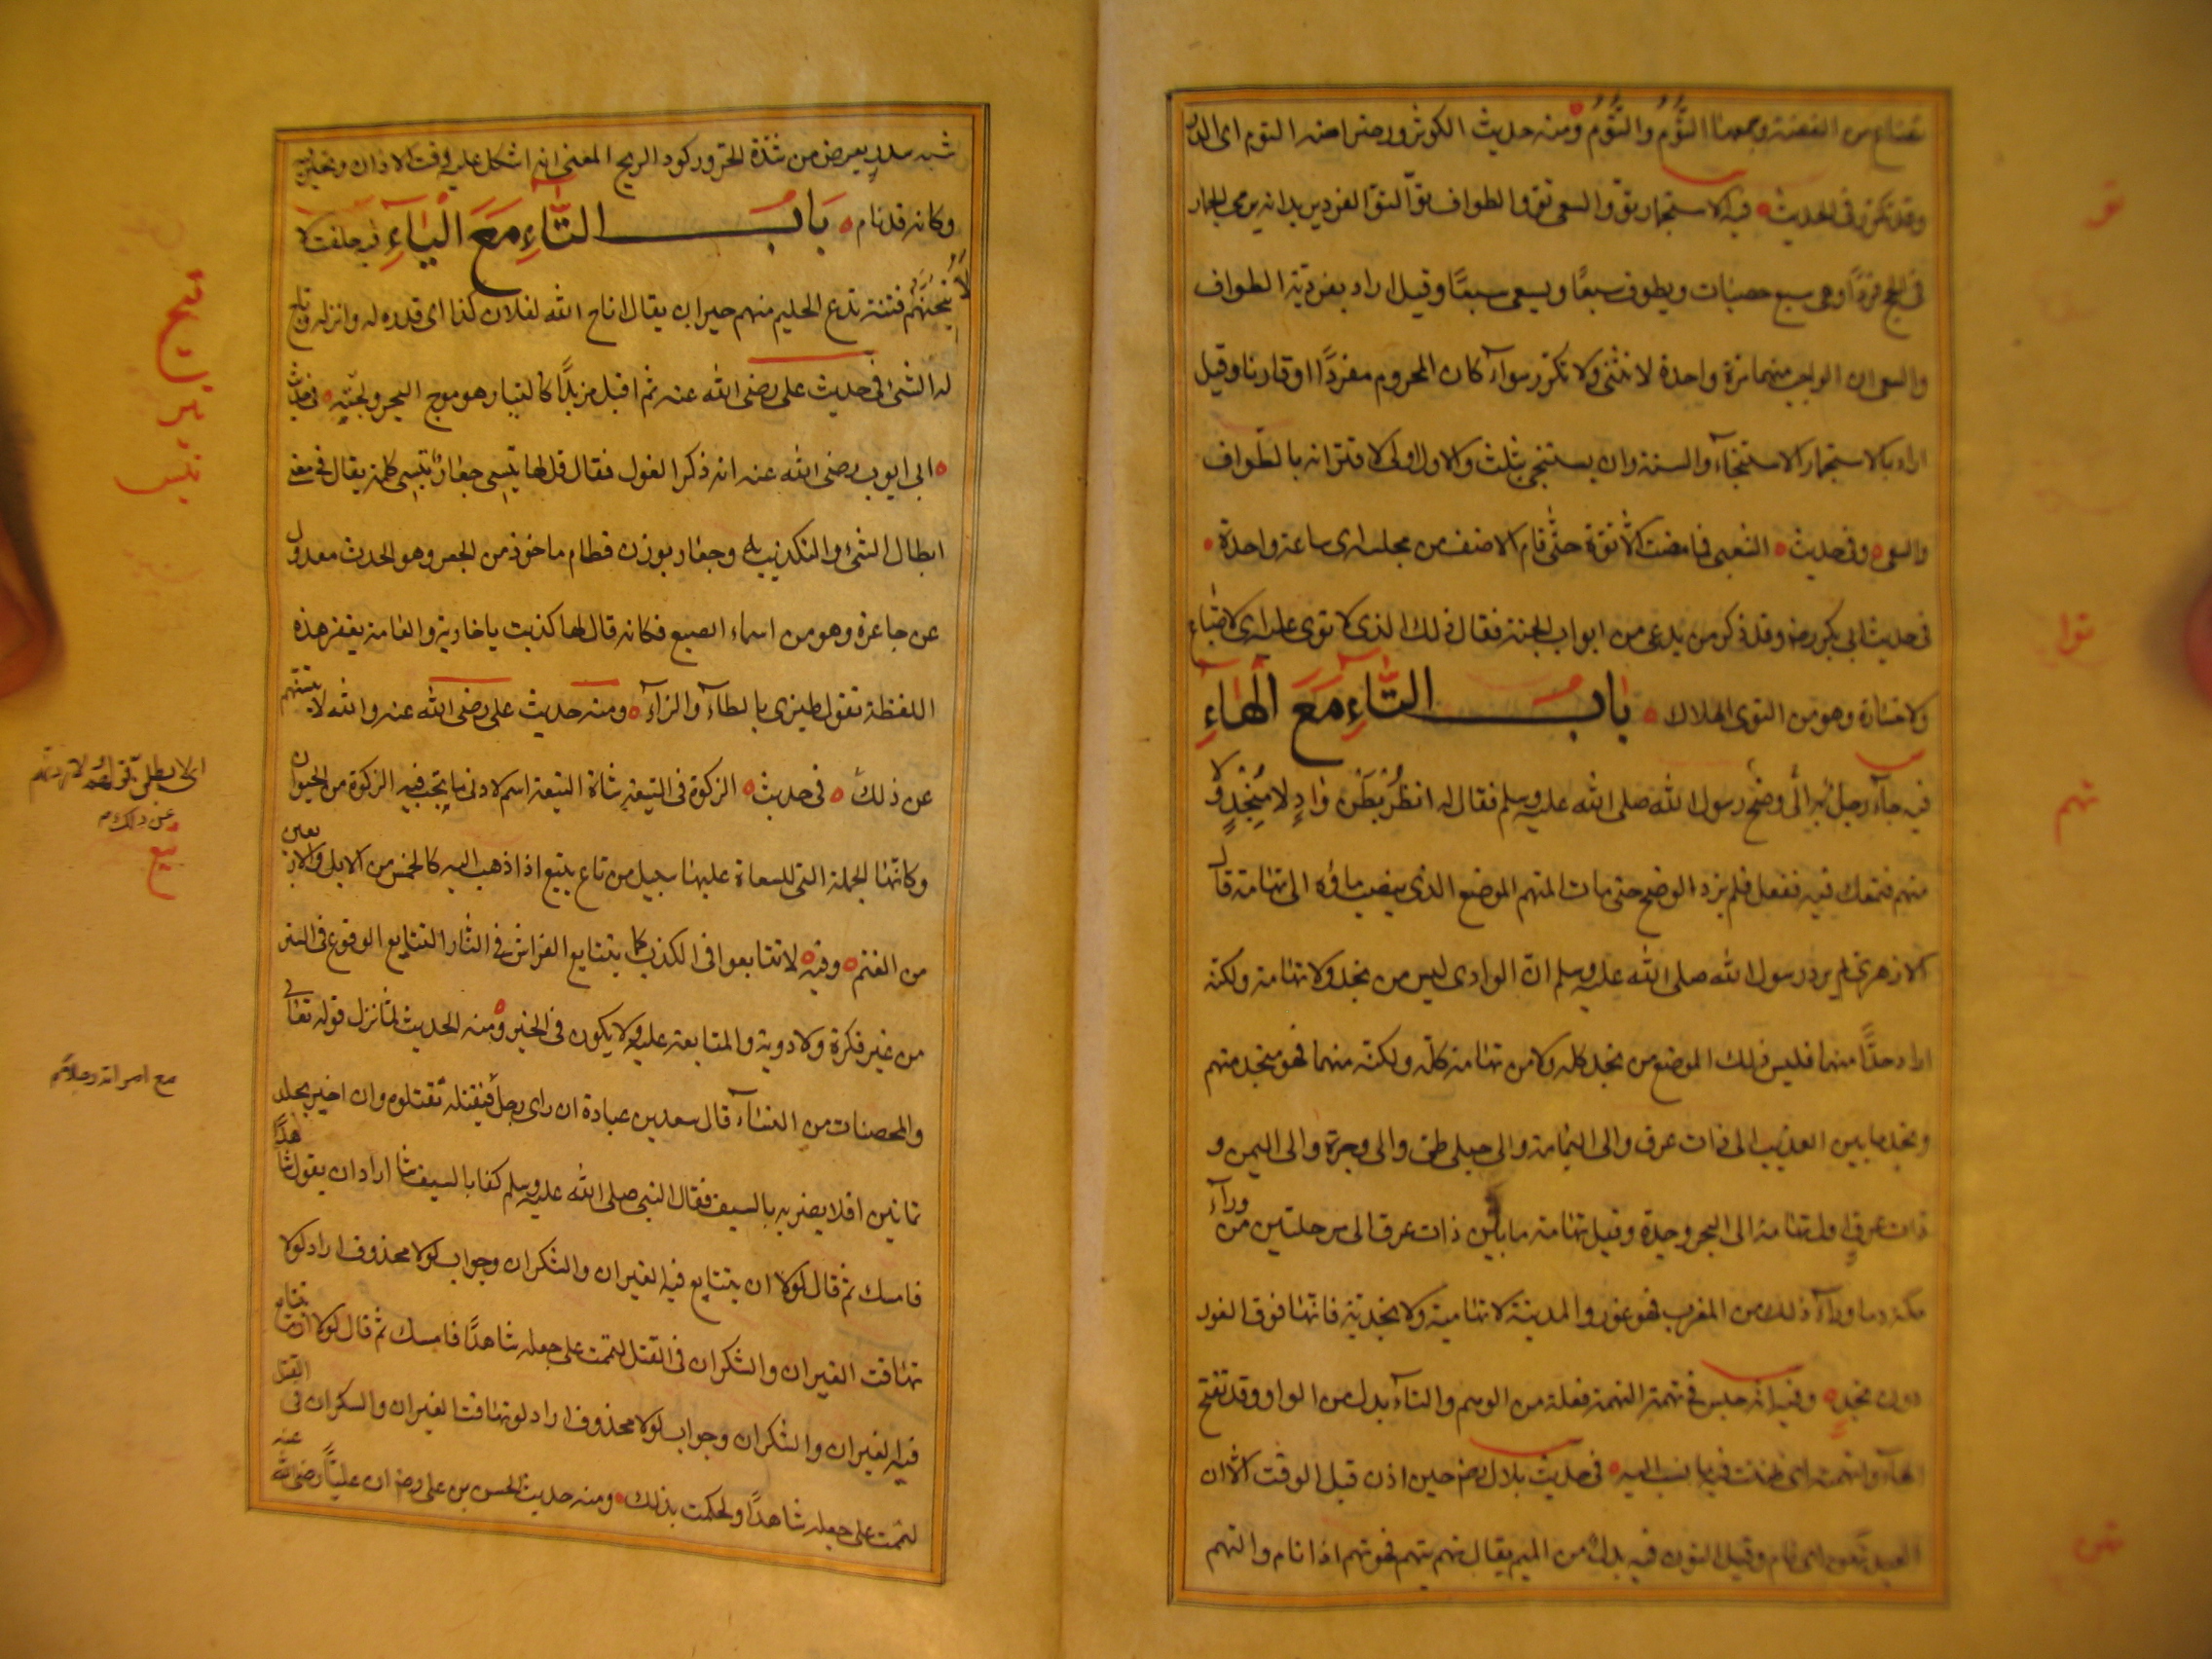 تصاغ من الفضة وجمعها التؤم والتوم ومنه حديث الكوثر ورضراضه التوم اى الدر
وقد تكرر فى الحديث فيه الاستجمار تو والسعى تو والطواف تو التو الفرد يريد انه يرمى الجمار
فى الحج فردا وهى سبع حصيات ويطوف سبعا ويسعى سبعا وقيل اراد بفردية الطواف
والسعى ان الواجب منهما مرة واحدة لا تثنى ولا تكرر سوآء كان المحرم مفردا او قارنا وقيل
اراد بالاستجمار الاستنجآء والسنة وان يستنجى بثلث والاول اولى لاقترانه بالطواف
والسعى وفى حديث الشعبى فما مضت الا توة حتى قام الاحنف من مجلسه اى ساعة واحدة
فى حديث ابى بكر رضه وقد ذكر من يدعى من ابواب الجنة فقال ذلك الذى لا توى عليه اى لا ضياع
ولا خسارة وهو من التوى الهلاك باب التآء مع الهآء
فيه جآء رجل به وضح الى رسول الله صلى الله عليه وسلم فقال له انظر بطن واد لا منجد ولا
متهم فتمعك فيه ففعل فلم يزد الوضح حتى مات المتهم الموضع الذى ينصب ماؤه الى تهامة قال
الازهرى لم يرد رسول الله صلى الله عليه وسلم ان الوادى ليس من نجد ولا تهامة ولكنه
اراد حدا منهما فليس ذلك الموضع من نجد كله ولا من تهامة كله ولكنه منهما فهو منجد متهم
ونجد ما بين العذيب الى ذات عرق والى اليمامة والى جبلى طى والى وجرة والى اليمن و
ذات عرق اول تهامة الى البحر وجدة وقيل تهامة ما بين ذات عرق الى مرحلتين من ورآء
مكة وما ورآء ذلك من المغرب فهو غور والمدينة لا تهامية ولا نجدية فانها فوق الغور
دون نجد وفيه انه حبس فى تهمة التهمة فعلة من الوهم والتآء بدل من الواو وقد تفتح
الهآء واتهمته اى ظننت فيه ما نسب اليه فى حديث بلال رضه حين اذن قبل الوقت الا ان
العبد تهن اى نام وقيل النون فيه بدل من الميم يقال تهم يتهم فهو تهم اذا نام والتهم
تو
توا
تهم
تهن
شبه سدر يعرض من شدة الحر وركود الريح المعنى انه اشكل عليه وقت الاذان وتحير فيه
وكانه قد نام باب التآء مع اليآء فيه حلفت لا
لاتيحنهم فتنة تدع الحليم منهم حيران يقال اتاح الله لفلان كذا اى قدره له وانزله وتاح
له الشئ فى حديث على رضى الله عنه ثم اقبل مزبدا كالتيار هو موج البحر ولجته فى حديث
ابى ايوب رضى الله عنه انه ذكر الغول فقال قل لها تيسى جعار تيسى كلمة يقال فى معنى
ابطال الشئ والتكذيب به وجعار بوزن قطام ماخوذ من الجعر وهو الحدث معدول
عن جاعرة وهو من اسماء الضبع فكانه قال لها كذبت يا خارية والعامة يغير هذه
اللفظة تقول طيزى بالطآء والزآء ومنه حديث على رضى الله عنه والله لا تيسنهم
عن ذلك فى حديث الزكوة فى التيعة شاة التيعة اسم لادنى ما يجب فيه الزكوة من الحيوان
وكانها الجملة التى للسعاة عليها سبيل من تاع يتيع اذا ذهب اليه كالخمس من الابل والاربعين
من الغنم وفيه لا تتايعوا فى الكذب كما يتتايع الفراش فى النار التتايع الوقوع فى الشر
من غير فكرة ولا روية والمتابعة عليه ولا يكون فى الخير ومنه الحديث لما نزل قوله تعالى
والمحصنات من النسآء قال سعد بن عبادة ان راى رجل فيقتله تقتلوه وان اخبر يجلد
ثمانين افلا يضربه بالسيف فقال النبى صلى الله عليه وسلم كفا بالسيف شا اراد ان يقول شاهدا
فامسك ثم قال لولا ان يتتايع فيه الغيران والسكران وجواب لولا محذوف اراد لولا
تهافت الغيران والسكران فى القتل لتممت على جعله شاهدا فامسك ثم قال لولا ان يتتايع
فيه الغيران والسكران وجواب لولا محذوف اراد لو تهافت الغيران والسكران فى القتل
لتممت على جعله شاهدا ولحكمت بذلك ومنه حديث الحسن بن على رضه ان عليا رضى الله عنه
تيح
تير
تيس
عن ذلك
تيع
مع امراته رجلا